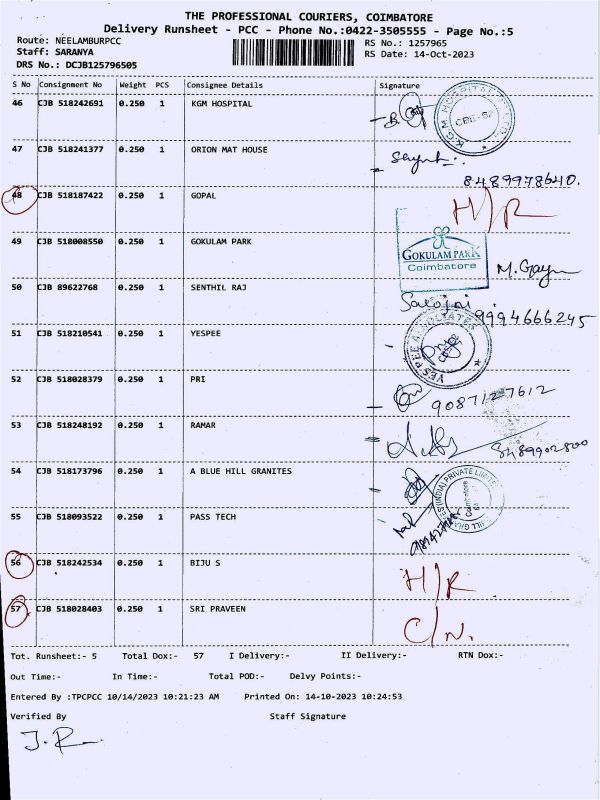 THE PROFESSIONAL COURIERS, COIMBATORE
Delivery Runsheet - PCC - Phone No.:0422-3505555 - Page No.:5
Route: NEELAMBURPCC RS No.: 1257965
Staff: SARANYA RS Date: 14-Oct-2023
DRS No.: DCJB125796505
S No Consignment No Weight PCS Consignee Details Signature
46 CJB 518242691 0.250 1 KGM HOSPITAL
47 CJB 518241377 0.250 1 ORION MAT HOUSE
8489978640.
48 CJB 518187422 0.250 1 GOPAL H/R
49 CJB 518008550 0.250 1 GOKULAM PARK GOKULAM PARK
Coimbatore
M. Gayu
50 CJB 89622768 0.250 1 SENTHIL RAJ Sarojni
9994666245
51 CJB 518210541 0.250 1 YESPEE YES PEE ASSOCIATES
52 CJB 518028379 0.250 1 PRI 9087127612
53 CJB 518248192 0.250 1 RAMAR 8489902800
54 CJB 518173796 0.250 1 A BLUE HILL GRANITES
55 CJB 518093522 0.250 1 PASS TECH
56 CJB 518242534 0.250 1 BIJU S H/R
57 CJB 518028403 0.250 1 SRI PRAVEEN C/N.
Tot. Runsheet:- 5 Total Dox:- 57 I Delivery:- II Delivery:- RTN Dox:-
Out Time:- In Time:- Total POD:- Delvy Points:-
Entered By :TPCPCC 10/14/2023 10:21:23 AM Printed On: 14-10-2023 10:24:53
Verified By Staff Signature
J. R